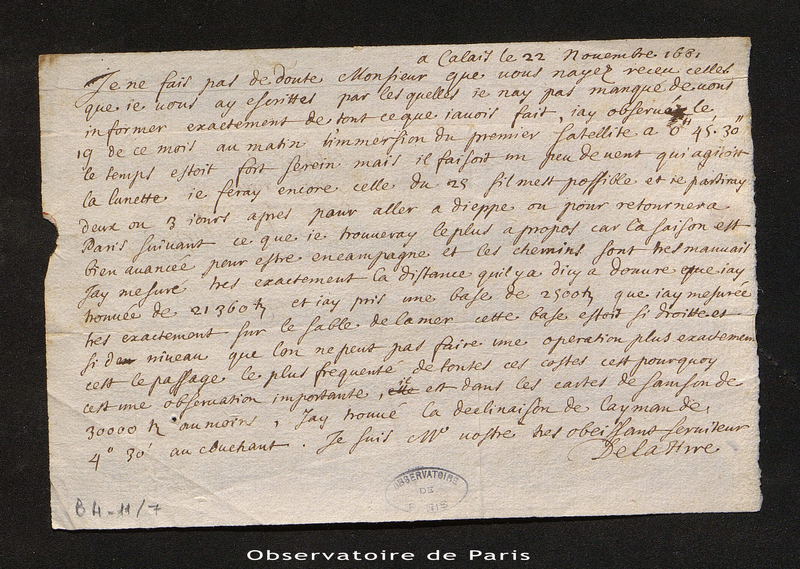 a Calais le 22 Novembre 1681
Je ne fais pas de doute Monsieur que vous nayez receu celles
que ie vous ay escrittes par lesquelles ie nay pas manqué de vous
informer exactement de tout ce que iavois fait, iay observé le
19 de ce mois au matin l'immersion du premier satellite a 6h 45' 30"
le temps estoit fort serein mais il faisoit un peu de vent qui agitoit
la lunette ie feray encore celle du 25 sil mest possible et ie partiray
deux ou 3 iours apres pour aller a dieppe ou pour retourner a
Paris suivant ce que ie trouveray le plus a propos car la saison est
bien avancée pour estre encampagne et les chemins sont tres mauvais
Jay mesuré tres exactement la distance quil y a dicy a douvre que iay
trouvée de 21360 t. et iay pris une base de 2500 t. que iay mesurée
tres exactement sur le sable de la mer cette base estoit si droitte et
si de niveau que lon ne peut pas faire une operation plus exactement
cest le passage le plus frequenté de toutes ces costes cest pourquoy
cest une observation importante, il est dans les cartes de samson de
30000 t. au moins, Jay trouvé la declinaison de layman de
4° 30' au couchant. Je suis Mr vostre tres obeissant serviteur
De la Hire
OBSERVATOIRE
DE
PARIS
B4-11/7
Observatoire de Paris